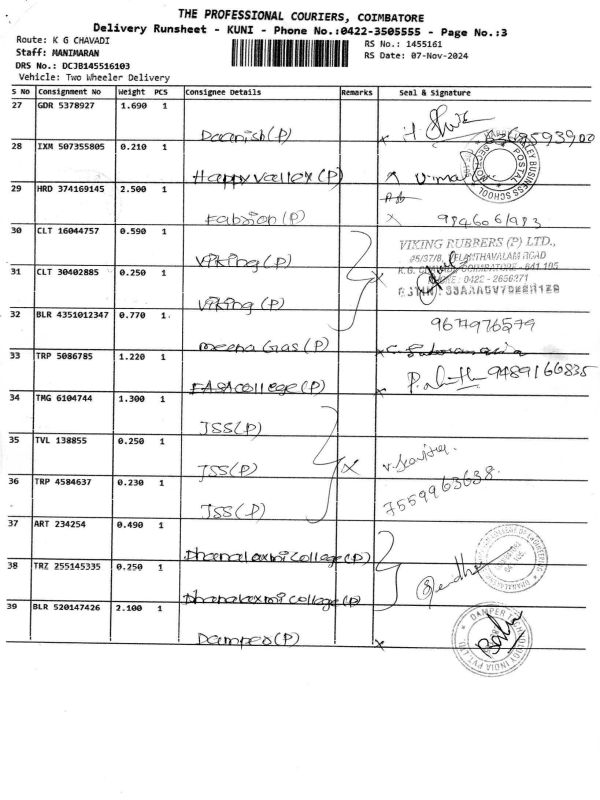 THE PROFESSIONAL COURIERS, COIMBATORE
Delivery Runsheet - KUNI - Phone No.:0422-3505555 - Page No.:3
Route: K G CHAVADI
RS No.: 1455161
Staff: MANIMARAN
RS Date: 07-Nov-2024
DRS No.: DCJB145516103
Vehicle: Two Wheeler Delivery
S No Consignment No Weight PCS Consignee Details Remarks Seal & Signature
27 GDR 5378927 1.690 1
Daanish(P)
28 IXM 507355805 0.210 1
Happy valley(P)
29 HRD 374169145 2.500 1
Fabsion(P)
30 CLT 16044757 0.590 1
VIKING RUBBERS (P) LTD.,
Viking(P)
31 CLT 30402885 0.250 1
Viking(P)
32 BLR 4351012347 0.770 1
9677976579
Meena Gas(P)
33 TRP 5086785 1.220 1
EASA college(P) 9489166835
34 TMG 6104744 1.300 1
JSS(P)
35 TVL 138855 0.250 1
JSS(P)
36 TRP 4584637 0.230 1
JSS(P) 7559963638
37 ART 234254 0.490 1
Dhanalaxmi College(P)
38 TRZ 255145335 0.250 1
Dhanalaxmi College(P)
39 BLR 520147426 2.100 1
Damper(P)